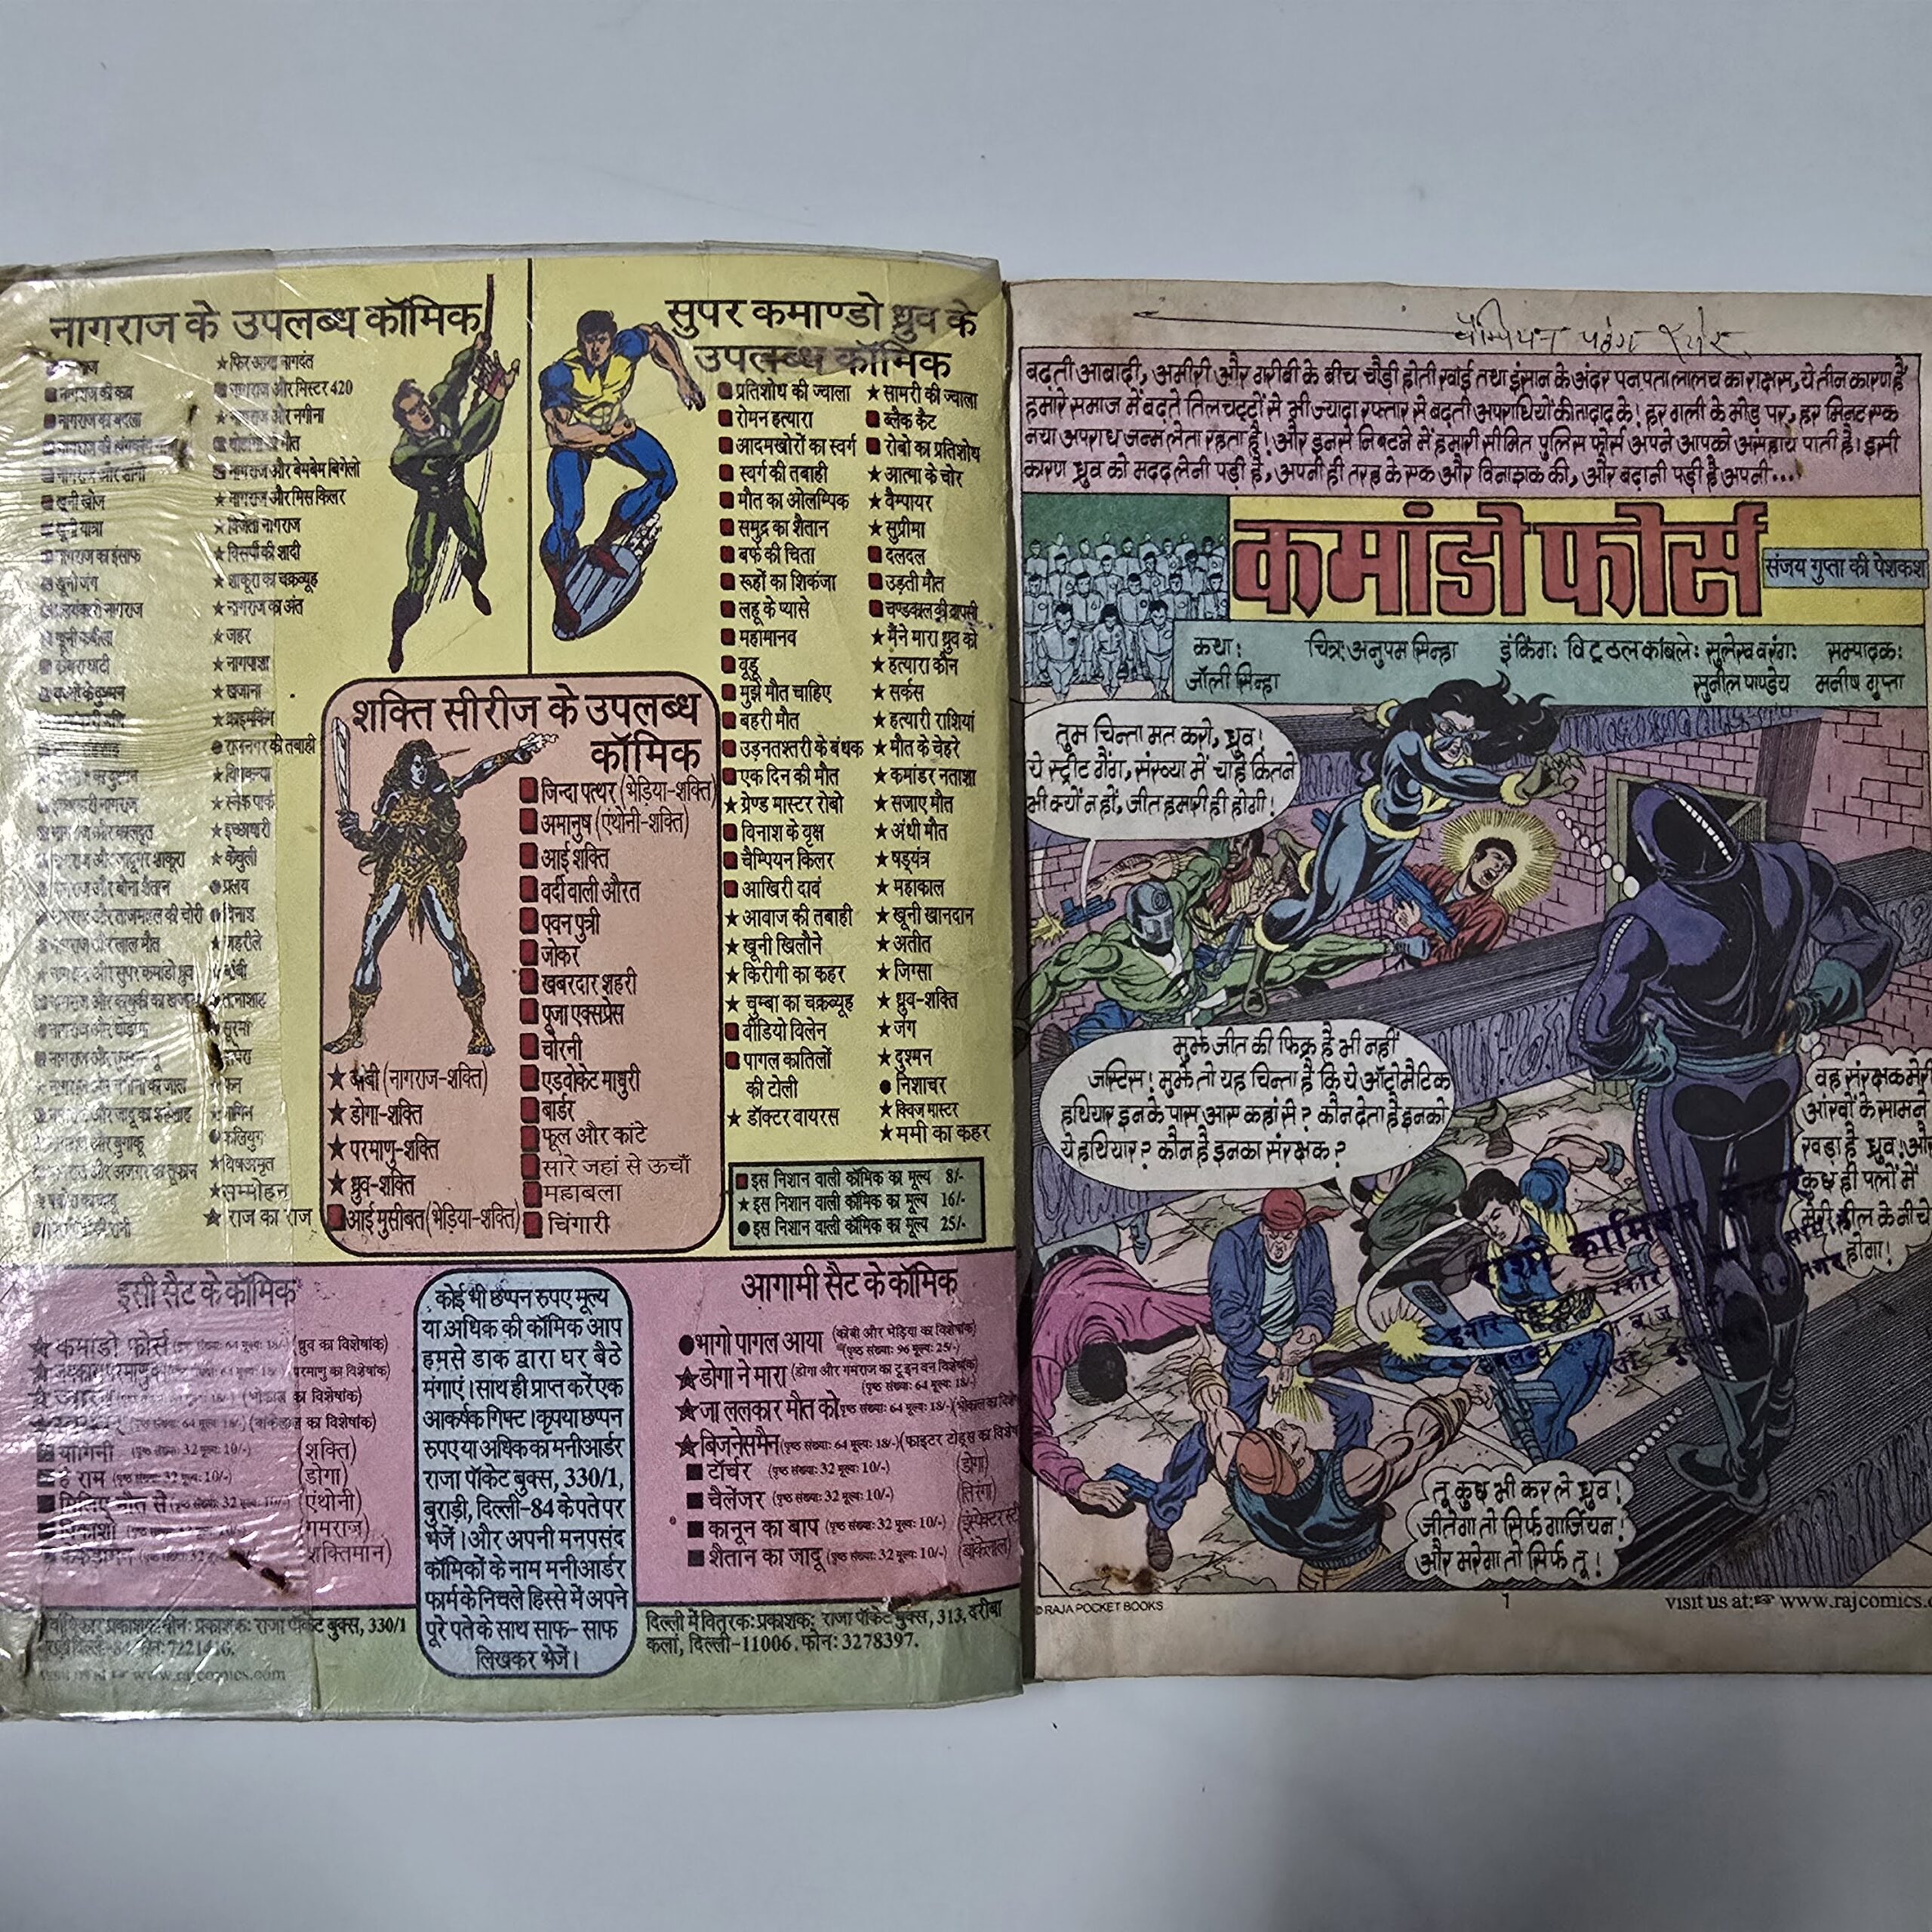 नागराज के उपलब्ध कॉमिक
नागराज की कब्र
नागराज का बदला
खूनी खोज
खूनी यात्रा
नागराज का इंसाफ
खूनी जंग
प्रलयंकारी नागराज
खूनी कबीला
नागराज और जादूगर शाकूरा
नागराज और बौना शैतान
नागराज और ताजमहल की चोरी
नागराज और लाल मौत
नागराज और सुपर कमांडो ध्रुव
नागराज और बुगाकू
★ फिर आया नागदंत
नागराज और मिस्टर 420
★ नागराज और नगीना
नागराज और बेमबेम बिगेलो
★ नागराज और मिस किलर
★ विजेता नागराज
★ विसर्पी की शादी
★ शाकूरा का चक्रव्यूह
★ नागराज का अंत
★ जहर
★ नागपाशा
★ खजाना
★ क्राइमकिंग
● राजनगर की तबाही
★ विषकन्या
★ स्नेक पार्क
★ इच्छाधारी
★ केंचुली
● प्रलय
● विनाश
★ जहरीले
★ बांबी
तानाशाह
★ सूरमा
सपेरा
फन
नागिन
● कलियुग
★ विषअमृत
★ सम्मोहन
★ राज का राज
सुपर कमाण्डो ध्रुव के
उपलब्ध कॉमिक
■ प्रतिशोध की ज्वाला
■ रोमन हत्यारा
■ आदमखोरों का स्वर्ग
■ स्वर्ग की तबाही
■ मौत का ओलम्पिक
■ समुद्र का शैतान
■ बर्फ की चिता
■ रूहों का शिकंजा
■ लहू के प्यासे
■ महामानव
■ वूडू
■ मुझे मौत चाहिए
■ बहरी मौत
■ उड़नतश्तरी के बंधक
■ एक दिन की मौत
★ ग्रेण्ड मास्टर रोबो
■ विनाश के वृक्ष
■ चैम्पियन किलर
■ आखिरी दावं
★ आवाज की तबाही
★ खूनी खिलौने
★ किरीगी का कहर
★ चुम्बा का चक्रव्यूह
■ वीडियो विलेन
■ पागल कातिलों
की टोली
★ डॉक्टर वायरस
★ सामरी की ज्वाला
■ ब्लैक कैट
■ रोबो का प्रतिशोध
★ आत्मा के चोर
★ वैम्पायर
★ सुप्रीमा
■ दलदल
■ उड़ती मौत
■ चण्डकाल की वापसी
★ मैंने मारा ध्रुव को
★ हत्यारा कौन
★ सर्कस
★ हत्यारी राशियां
★ मौत के चेहरे
★ कमांडर नताशा
★ सजाए मौत
★ अंधी मौत
★ षड्यंत्र
★ महाकाल
★ खूनी खानदान
★ अतीत
★ जिग्सा
★ ध्रुव-शक्ति
★ जंग
★ दुश्मन
● निशाचर
★ क्विज मास्टर
★ ममी का कहर
■ इस निशान वाली कॉमिक का मूल्य 8/-
★ इस निशान वाली कॉमिक का मूल्य 16/-
● इस निशान वाली कॉमिक का मूल्य 25/-
शक्ति सीरीज के उपलब्ध
कॉमिक
■ जिन्दा पत्थर (भेड़िया-शक्ति)
■ अमानुष (एंथोनी-शक्ति)
■ आई शक्ति
■ वर्दी वाली औरत
■ पवन पुत्री
■ जोकर
■ खबरदार शहरी
■ पूजा एक्सप्रेस
■ चोरनी
■ एडवोकेट माधुरी
■ बार्डर
■ फूल और कांटे
■ सारे जहां से ऊचाँ
■ महाबला
■ चिंगारी
★ बांबी (नागराज-शक्ति)
★ डोगा-शक्ति
★ परमाणु-शक्ति
★ ध्रुव-शक्ति
■ आई मुसीबत (भेड़िया-शक्ति)
इसी सैट के कॉमिक
★ कमांडो फोर्स (पृष्ठ संख्या: 64 मूल्य: 18/-) (ध्रुव का विशेषांक)
परमाणु का विशेषांक)
का विशेषांक)
का विशेषांक)
■ योगिनी (पृष्ठ संख्या: 32 मूल्य: 10/-) (शक्ति)
■ हे राम (पृष्ठ संख्या: 32 मूल्य: 10/-) (डोगा)
(पृष्ठ संख्या: 32 मूल्य: 10/-) (एंथोनी)
(गमराज)
(शक्तिमान)
कोई भी छप्पन रुपए मूल्य
या अधिक की कॉमिक आप
हमसे डाक द्वारा घर बैठे
मंगाएं। साथ ही प्राप्त करें एक
आकर्षक गिफ्ट। कृपया छप्पन
रुपए या अधिक का मनीआर्डर
राजा पॉकेट बुक्स, 330/1,
बुराड़ी, दिल्ली-84 के पते पर
भेजें। और अपनी मनपसंद
कॉमिकों के नाम मनीआर्डर
फार्म के निचले हिस्से में अपने
पूरे पते के साथ साफ-साफ
लिखकर भेजें।
आगामी सैट के कॉमिक
● भागो पागल आया (कोबी और भेड़िया का विशेषांक)
(पृष्ठ संख्या: 96 मूल्य: 25/-)
★ डोगा ने मारा (डोगा और गमराज का टू इन वन विशेषांक)
(पृष्ठ संख्या: 64 मूल्य: 18/-)
★ जा ललकार मौत को (पृष्ठ संख्या: 64 मूल्य: 18/-) (भोकाल का
★ बिजनेसमैन (पृष्ठ संख्या: 64 मूल्य: 18/-) (फाइटर टोड्स का
■ टॉर्चर (पृष्ठ संख्या: 32 मूल्य: 10/-) (डोगा)
■ चैलेंजर (पृष्ठ संख्या: 32 मूल्य: 10/-) (तिरंगा)
■ कानून का बाप (पृष्ठ संख्या: 32 मूल्य: 10/-)
■ शैतान का जादू (पृष्ठ संख्या: 32 मूल्य: 10/-) (बांकेलाल)
प्रकाशक: राजा पॉकेट बुक्स, 330/1
www.rajcomics.com
दिल्ली में वितरक: प्रकाशक: राजा पॉकेट बुक्स, 313, दरीबा
कलां, दिल्ली-11006. फोन: 3278397.
चैम्पियन पतंग स्टोर
बढ़ती आबादी, अमीरी और गरीबी के बीच चौड़ी होती खाई तथा इंसान के अंदर पनपता लालच का राक्षस, ये तीन कारण हैं
हमारे समाज में बढ़ते तिलचट्टों से भी ज्यादा रफ्तार से बढ़ती अपराधियों की तादाद के! हर गली के मोड़ पर, हर मिनट एक
नया अपराध जन्म लेता रहता है! और इनसे निबटने में हमारी सीमित पुलिस फोर्स अपने आपको असहाय पाती है। इसी
कारण ध्रुव को मदद लेनी पड़ी है, अपनी ही तरह के एक और विनाशक की, और बढ़ानी पड़ी है अपनी...
कमांडो फोर्स
संजय गुप्ता की पेशकश
कथा: चित्र: अनुपम सिन्हा इंकिंग: विट्ठल कांबले: सुलेख व रंग: सम्पादक:
जॉली सिन्हा सुनील पाण्डेय मनीष गुप्ता
तुम चिन्ता मत करो, ध्रुव!
ये स्ट्रीट गैंग, संख्या में चाहे कितने
भी क्यों न हों, जीत हमारी ही होगी!
मुझे जीत की फिक्र है भी नहीं
जस्टिस! मुझे तो यह चिन्ता है कि ये ऑटोमैटिक
हथियार इनके पास आए कहां से? कौन देता है इनको
ये हथियार? कौन है इनका संरक्षक?
वह संरक्षक मेरी
आंखों के सामने
खड़ा है ध्रुव! और
कुछ ही पलों में
मेरी सील के नीचे
होगा!
राशी कामिक्स सेन्टर
तू कुछ भी कर ले ध्रुव!
जीतेगा तो सिर्फ गार्जियन!
और मरेगा तो सिर्फ तू!
© RAJA POCKET BOOKS
1
visit us at: ☞ www.rajcomics.c